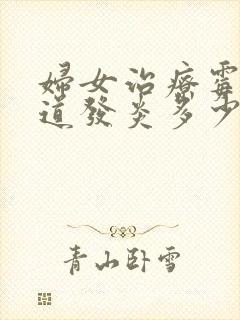 婦女治療霉
道發炎多少
青山卧雪